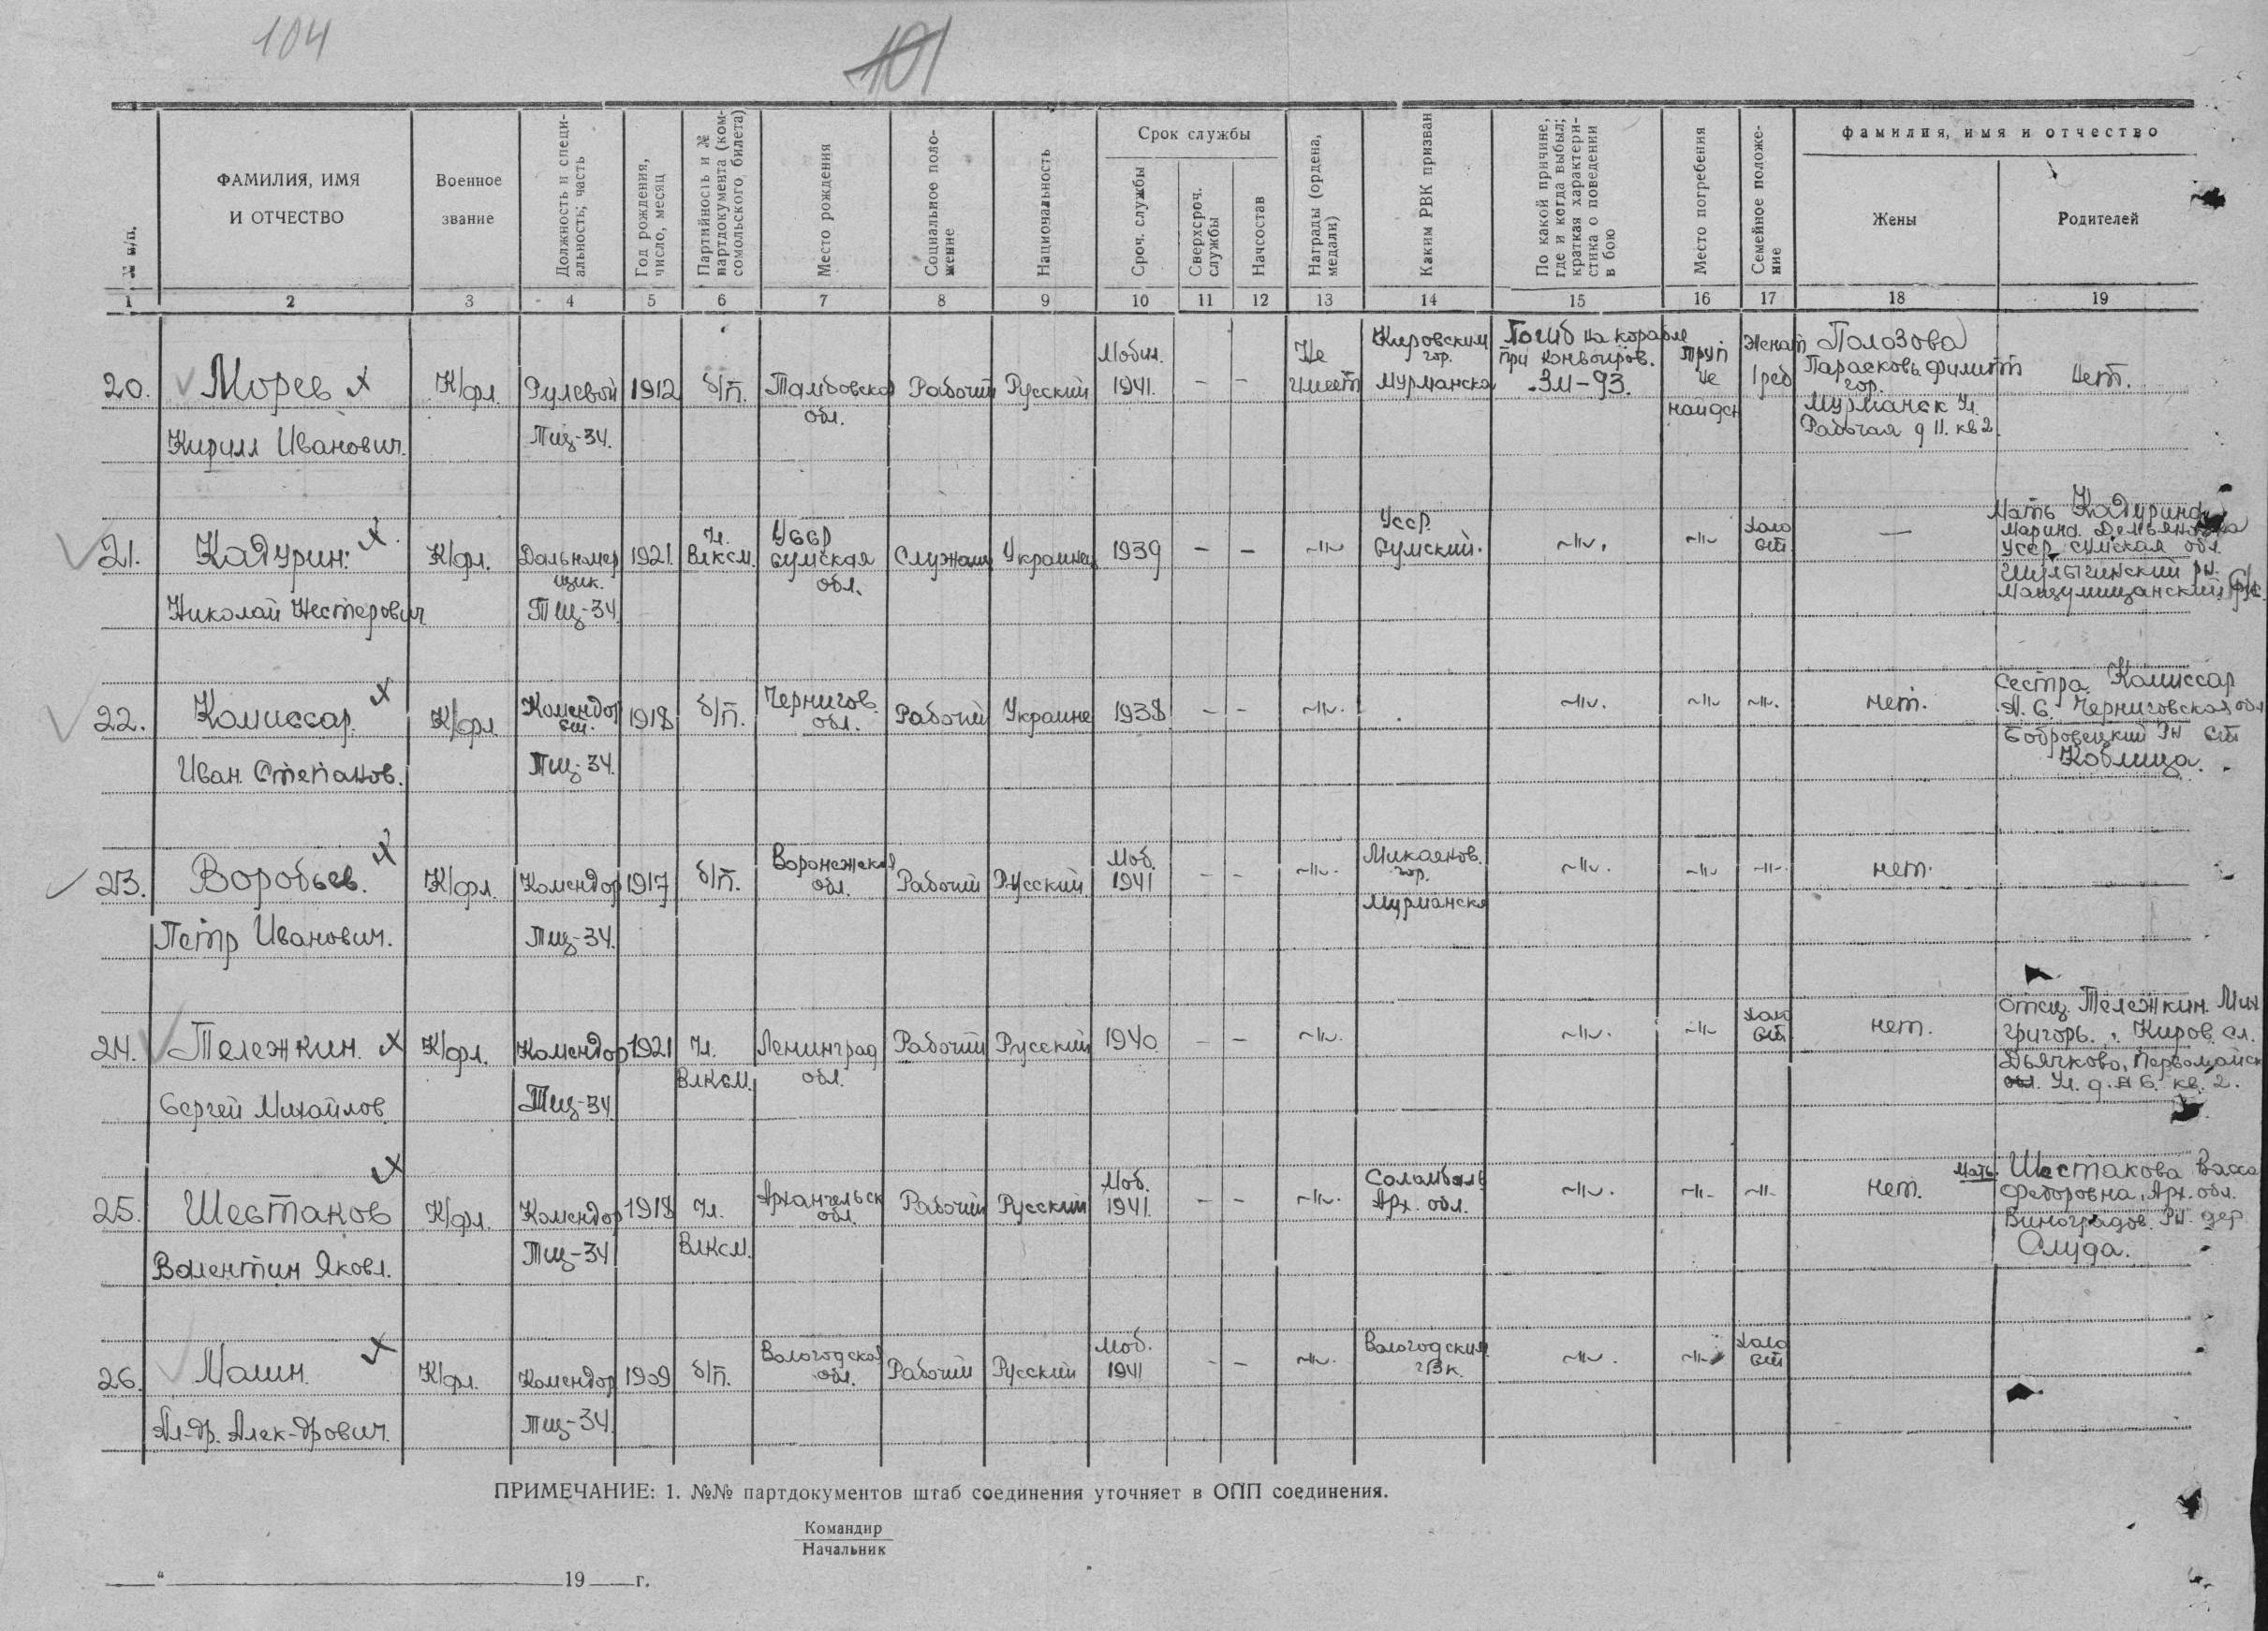 104
101
ФАМИЛИЯ, ИМЯ
И ОТЧЕСТВО
Военное
звание
Должность и специ-
альность; часть
Год рождения,
число, месяц
Партийность и №
партдокумента (ком-
сомольского билета)
Место рождения
Социальное поло-
жение
Национальность
Срок службы
Сроч. службы
Сверхсроч.
службы
Начсостав
Награды (ордена,
медали)
Каким РВК призван
По какой причине,
где и когда выбыл;
краткая характери-
стика о поведении
в бою
Место погребения
Семейное положе-
ние
фамилия, имя и отчество
Жены
Родителей
№ п/п.
1 2 3 4 5 6 7 8 9 10 11 12 13 14 15 16 17 18 19
20. Морев х
Кирилл Иванович.
К/фл.
Рулевой
Тщ-34.
1912
б/п.
Тамбовская
обл.
Рабочий
Русский
Мобил.
1941.
– –
Не
имеет
Кировским
гор.
Мурманска
Погиб на корабле
при конвоиров.
ЗМ-93.
труп
не
найден
Женат
1 реб
Полозова
Парасковь Филипп
гор.
Мурманск Ул.
Рабочая д 11. кв 2.
Нет.
21. Кадурин. х
Николай Нестерович
К/фл.
Дальномер
щик.
Тщ-34.
1921
Чл.
Влксм.
УССР
Сумская
обл.
Служащ
Украинец
1939
– –
~〃~
Усср.
Сумский.
~〃~.
~〃~
холо
ст.
—
Мать Кадурина
Марина. Демьяновна
Усср Сумская обл.
рн.
22. Комиссар. х
Иван. Степанов.
К/фл
Комендор
ст.
Тщ-34.
1918
б/п.
Чернигов.
обл.
Рабочий
Украине
1938
– –
~〃~.
~〃~.
~〃~
~〃~.
нет.
Сестра. Комиссар
А. С. Черниговская обл
Бобровецкий рн ст
Кобмица.
23. Воробьев. х
Петр Иванович.
К/фл.
Комендор
Тщ-34.
1917
б/п.
Воронежская
обл.
Рабочий
Русский
Моб.
1941
– –
~〃~.
Микоянов.
гор.
Мурманска
~〃~.
~〃~
~〃~
нет.
24. Тележкин. х
Сергей Михайлов
К/фл.
Комендор
Тщ-34
1921
Чл.
Влксм.
Ленинград
обл.
Рабочий
Русский
1940
– –
~〃~.
~〃~.
~〃~
холо
ст.
нет.
отец. Тележкин. Мих
григорь., Киров. сл.
Дьячково, Первомайск
обл. Ул. д. А 6. кв. 2.
25. Шестаков х
Валентин Яковл.
К/фл.
Комендор
Тщ-34
1918
Чл.
Влксм.
Архангельск
обл.
Рабочий
Русский
Моб.
1941.
– –
~〃~.
Соломбаль
Арх. обл.
~〃~.
~〃~
~〃~
нет.
Мать. Шестакова Васса
Федоровна, Арх. обл.
Виноградов. рн. дер
Слуда.
26. Малин. х
Ал-др. Алек-дрович.
К/фл.
Комендор
Тщ-34.
1909
б/п.
Вологодская
обл.
Рабочий
Русский
Моб.
1941
– –
~〃~.
Вологодским
гВк.
~〃~.
~〃~
холо
ст
ПРИМЕЧАНИЕ: 1. №№ партдокументов штаб соединения уточняет в ОПП соединения.
Командир
Начальник
" 19 г.